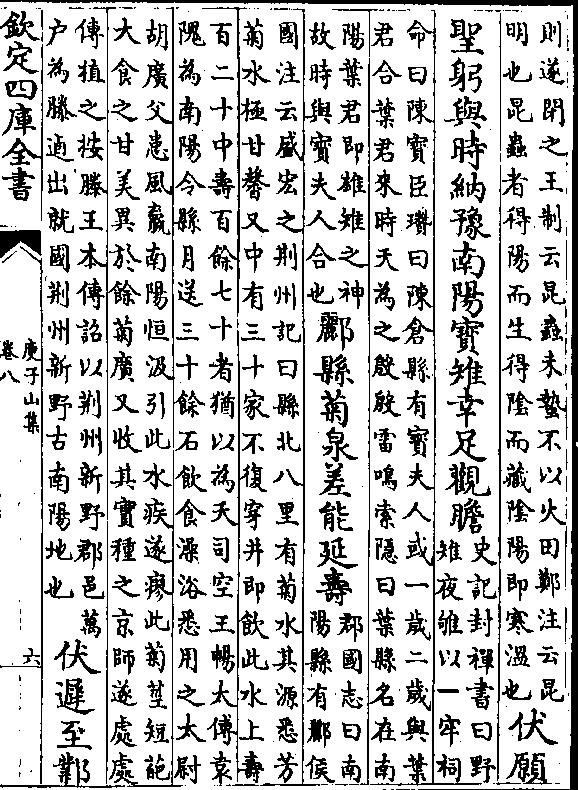 則遂閉之王制云昆蟲未蟄不以火田鄭注云昆
明也昆蟲者得陽而生得陰而藏陰陽即寒溫也
伏願
聖躬與時納豫南陽寶雉幸足觀瞻
史記封禪書曰野
雉夜雊以一牢祠
命曰陳寶臣瓚曰陳倉縣有寶夫人或一歲二歲與葉
君合葉君來時天為之殷殷雷鳴索隱曰葉縣名在南
陽葉君即雄雉之神
故時與寶夫人合也
酈縣菊泉差能延壽
郡國志曰南
陽縣有酈侯
國注云盛宏之荆州記曰縣北八里有菊水其源悉芳
菊水極甘馨又中有三十家不復穿井即飲此水上壽
百二十中壽百餘七十者猶以為天司空王暢太傅袁
隗為南陽令縣月送三十餘石飲食澡浴悉用之太尉
胡廣父患風羸南陽恒汲引此水疾遂瘳此菊莖短葩
大食之甘美異於餘菊廣又收其實種之京師遂處處
傳植之按滕王本傳詔以荆州新野郡邑萬
户為滕逌出就國荆州新野古南陽地也
伏遲至鄴
欽定四庫全書
庾子山集
卷八
六